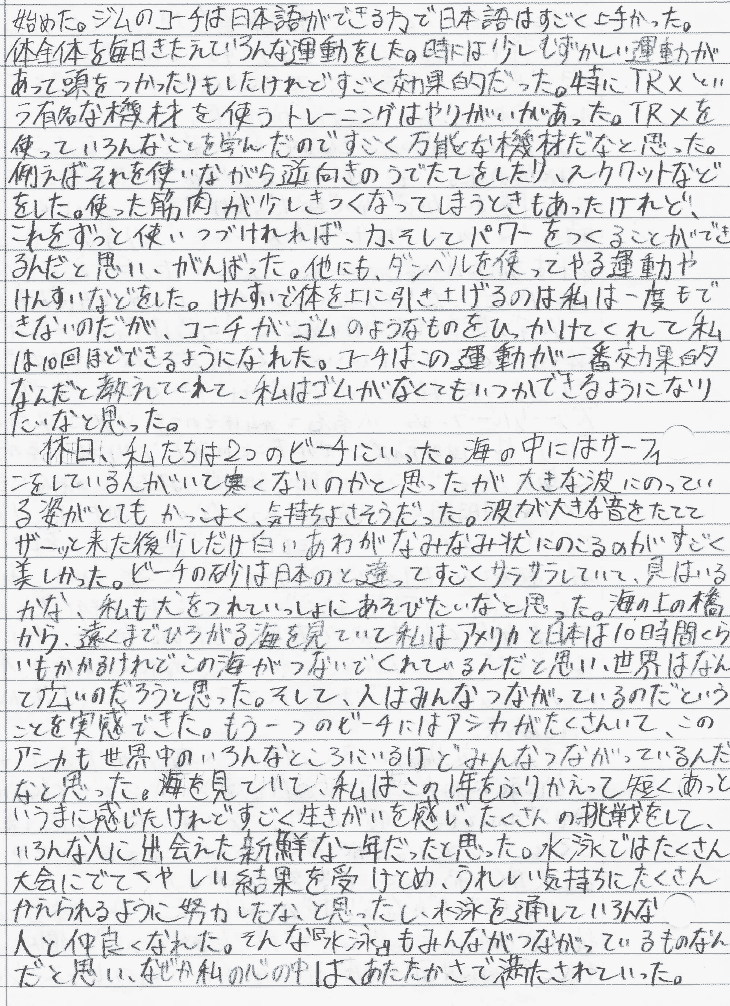 始めた。ジムのコーチは日本語ができる方で日本語はすごく上手かった。
体全体を毎日きたえていろんな運動をした。時には少しむずかしい運動が
あって頭をつかったりもしたけれどすごく効果的だった。特にTRXとい
う有名な機材を使うトレーニングはやりがいがあった。TRXを
使っていろんなことを学んだのですごく万能な機材だなと思った。
例えばそれを使いながら逆向きのうでたてをしたり、スクワットなど
をした。使った筋肉が少しきつくなってしまうときもあったけれど、
これをずっと使いつづければ、力、そしてパワーをつくることができ
るんだと思い、がんばった。他にも、ダンベルを使ってやる運動や
けんすいなどをした。けんすいで体を上に引き上げるのは私は一度もで
きないのだが、コーチがゴムのようなものをひっかけてくれて私
は10回ほどできるようになれた。コーチはこの運動が一番効果的
なんだと教えてくれて、私はゴムがなくてもいつかできるようになり
たいなと思った。
休日、私たちは2つのビーチにいった。海の中にはサーフィ
ンをしているんがいて寒くないのかと思ったが大きな波にのってい
る姿がとてもかっこよく、気持ちよさそうだった。波が大きな音をたてて
ザーッと来た後少しだけ白いあわがなみなみ状にのこるのがすごく
美しかった。ビーチの砂は日本のと違ってすごくサラサラしていて、貝はいる
かな、私も犬をつれていっしょにあそびたいなと思った。海の上の橋
から、遠くまでひろがる海を見ていて私はアメリカと日本は10時間くら
いもかかるけれどこの海がつないでくれているんだと思い、世界はなん
て広いのだろうと思った。そして、人はみんなつながっているのだという
ことを実感できた。もう一つのビーチにはアシカがたくさんいて、この
アシカも世界中のいろんなところにいるけどみんなつながっているんだ
なと思った。海を見ていて、私はこの1年をふりかえって短く、あっと
いうまに感じたけれどすごく生きがいを感じ、たくさんの挑戦をして、
いろんな人に出会えた新鮮な一年だったと思った。水泳ではたくさん
大会にでてくやしい結果を受けとめ、うれしい気持ちにたくさん
かえられるように努力したな、と思ったし、水泳を通していろんな
人と仲良くなれた。そんな『水泳』もみんながつながっているものなん
だと思い、なぜか私の心の中は、あたたかさで満たされていった。